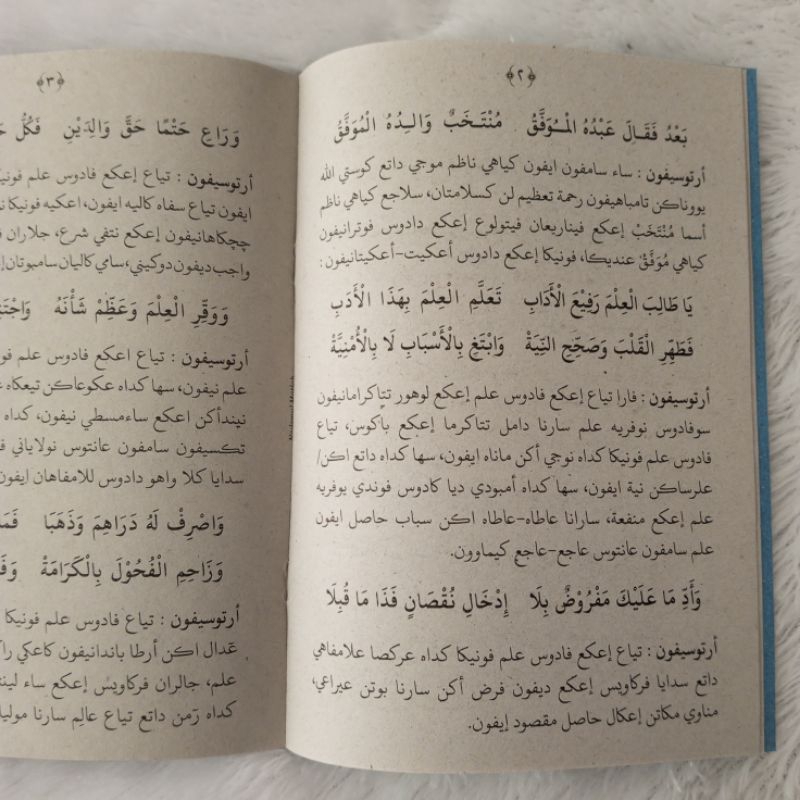 ﴿٢﴾
بَعْدُ فَقَالَ عَبْدُهُ الْمُوَفَّقُ مُنْتَخَبٌ وَالِدُهُ الْمُوَفَّقُ
أرتوسيفون : ساء سامفون ايفون كياهي ناظم موجي داتع كوستي الله
يووناكن تامباهيفون رحمة تعظيم لن كسلامتان، سلاجع كياهي ناظم
أسما مُنْتَخَبْ إعكع فيناريعان فيتولوع إعكع دادوس فوترانيفون
كياهي مُوَفَّقْ عنديكا، فونيكا إعكع دادوس أعكيت-أعكيتانيفون :
يَا طَالِبَ الْعِلْمَ رَفِيْعَ الْأَدَابِ تَعَلَّمِ الْعِلْمَ بِهَذَا الْأَدَبِ
فَطَهِّرِ الْقَلْبَ وَصَحِّحِ النِّيَةْ وَابْتَغِ بِالْأَسْبَابِ لَا بِالْأُمْنِيَّةْ
أرتوسيفون : فارا تياع إعكع فادوس علم إعكع لوهور تتاكرامانيفون
سوفادوس نوفريه علم سارنا دامل تتاكرما إعكع باكوس، تياع
فادوس علم فونيكا كداه نوجي أكن ماناه ايفون، سها كداه داتع اكن/
علرساكن نية ايفون، سها كداه أمبودي ديا كادوس فوندي يوفريه
علم إعكع منفعة، سارانا عاطاه-عاطاه اكن سباب حاصل ايفون
علم سامفون عانتوس عاجع-عاجع كيماوون.
وَأَدِّ مَا عَلَيْكَ مَفْرُوْضٌ بِلَا إِدْخَالِ نُقْصَانٍ فَذَا مَا قُبِلَا
أرتوسيفون : تياع إعكع فادوس علم فونيكا كداه عركصا علامفاهي
داتع سدايا فركاويس إعكع ديفون فرض أكن سارنا بوتن عيراعي،
مناوي مكاتن إعكال حاصل مقصود إيفون.
﴿٣﴾
وَرَاعِ حَتْمًا حَقَّ وَالِدَيْنِ فَكُلُّ
أرتوسيفون : تياع إعكع فادوس علم
ايفون تياع سفاه كاليه ايفون، اعكيه فونيكا
چچكاهانيفون إعكع نتفي شرع، جلاران
واجب ديفون دوكيني، سامي كاليان
وَوَقِّرِ الْعِلْمَ وَعَظِّمْ شَأْنَهُ
أرتوسيفون : تياع اعكع فادوس علم
علم نيفون، سها كداه عكوعاكن تيعكاه
نيندأكن اعكع ساءمسطي نيفون، كداه
تكسيفون سامفون عانتوس نولاياني
سدايا كلا واهو دادوس للامفاهان
وَاصْرِفْ لَهُ دَرَاهِمَ وَذَهَبَا
وَزَاحِمِ الْفُحُوْلَ بِالْكَرَامَةْ
أرتوسيفون : تياع فادوس علم فونيكا
عدال اكن أرطا باندانيفون كاعكي
علم، جالران فركاويس إعكع ساء
كداه زمن داتع تياع عالم سارنا